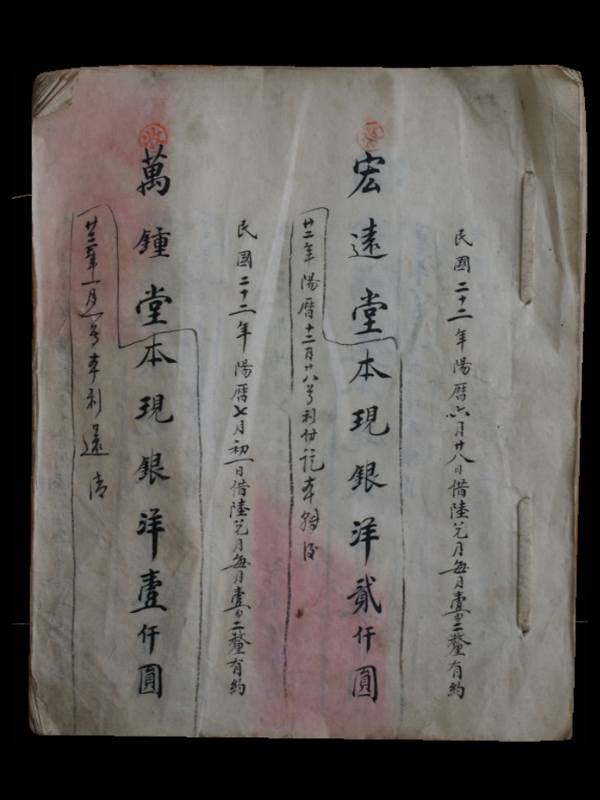 民國二十二年陽曆六月廿八日借陸個月每月壹分二釐有約
宏遠堂本現銀洋貳仟圓
廿二年陽曆十二月廿八号利付訖本轉後
民國二十二年陽曆七月初一日借陸個月每月壹分二釐有約
收
萬鍾堂本現銀洋壹仟圓
廿三年一月一号本利還清